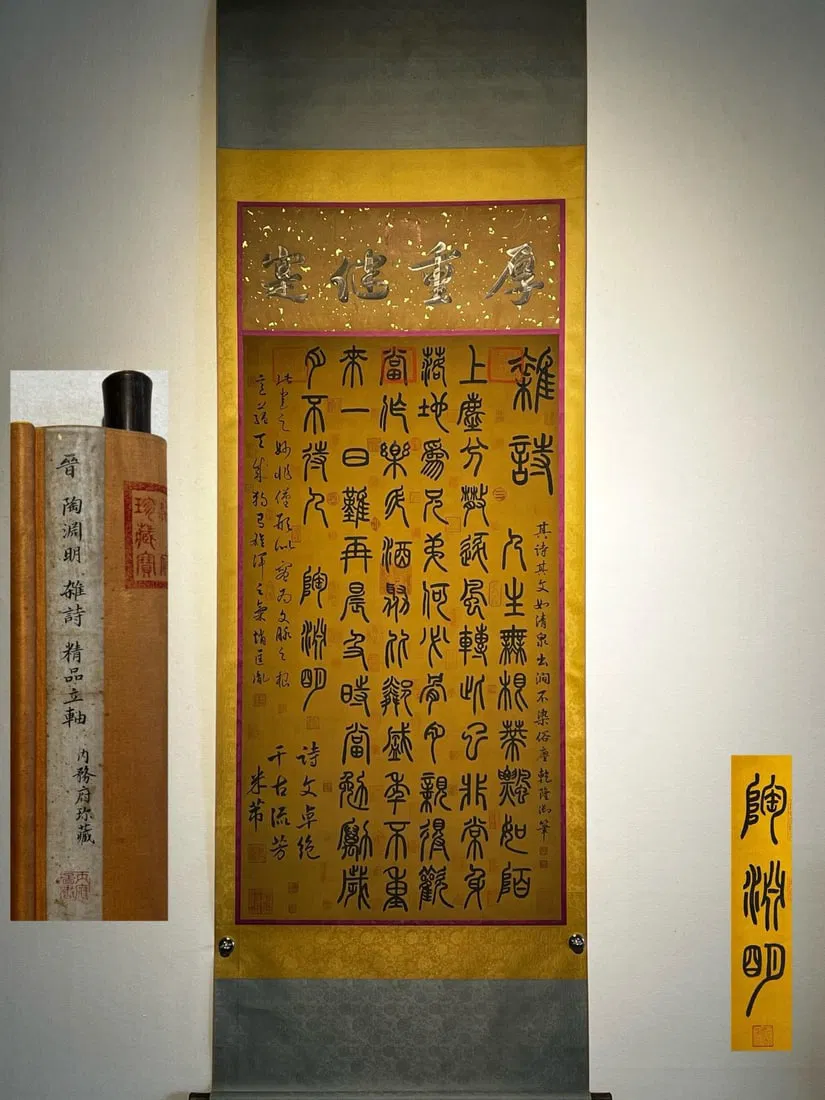 厚重
雜詩
其詩其文如清泉出澗不染俗塵 乾隆御筆
人生無根蒂飄如陌
上塵分散逐風轉此已非常身
落地為兄弟何必骨肉親得歡
當作樂斗酒聚比鄰盛年不重
來一日難再晨及時當勉勵歲
月不待人 陶淵明
詩文卓絕
千古流芳
米芾
此書之妙非僅形似實為文脈之根
之氣 趙匡胤
晉 陶淵明 雜詩 精品立軸 內務府珍藏
珍藏寶
陶淵明